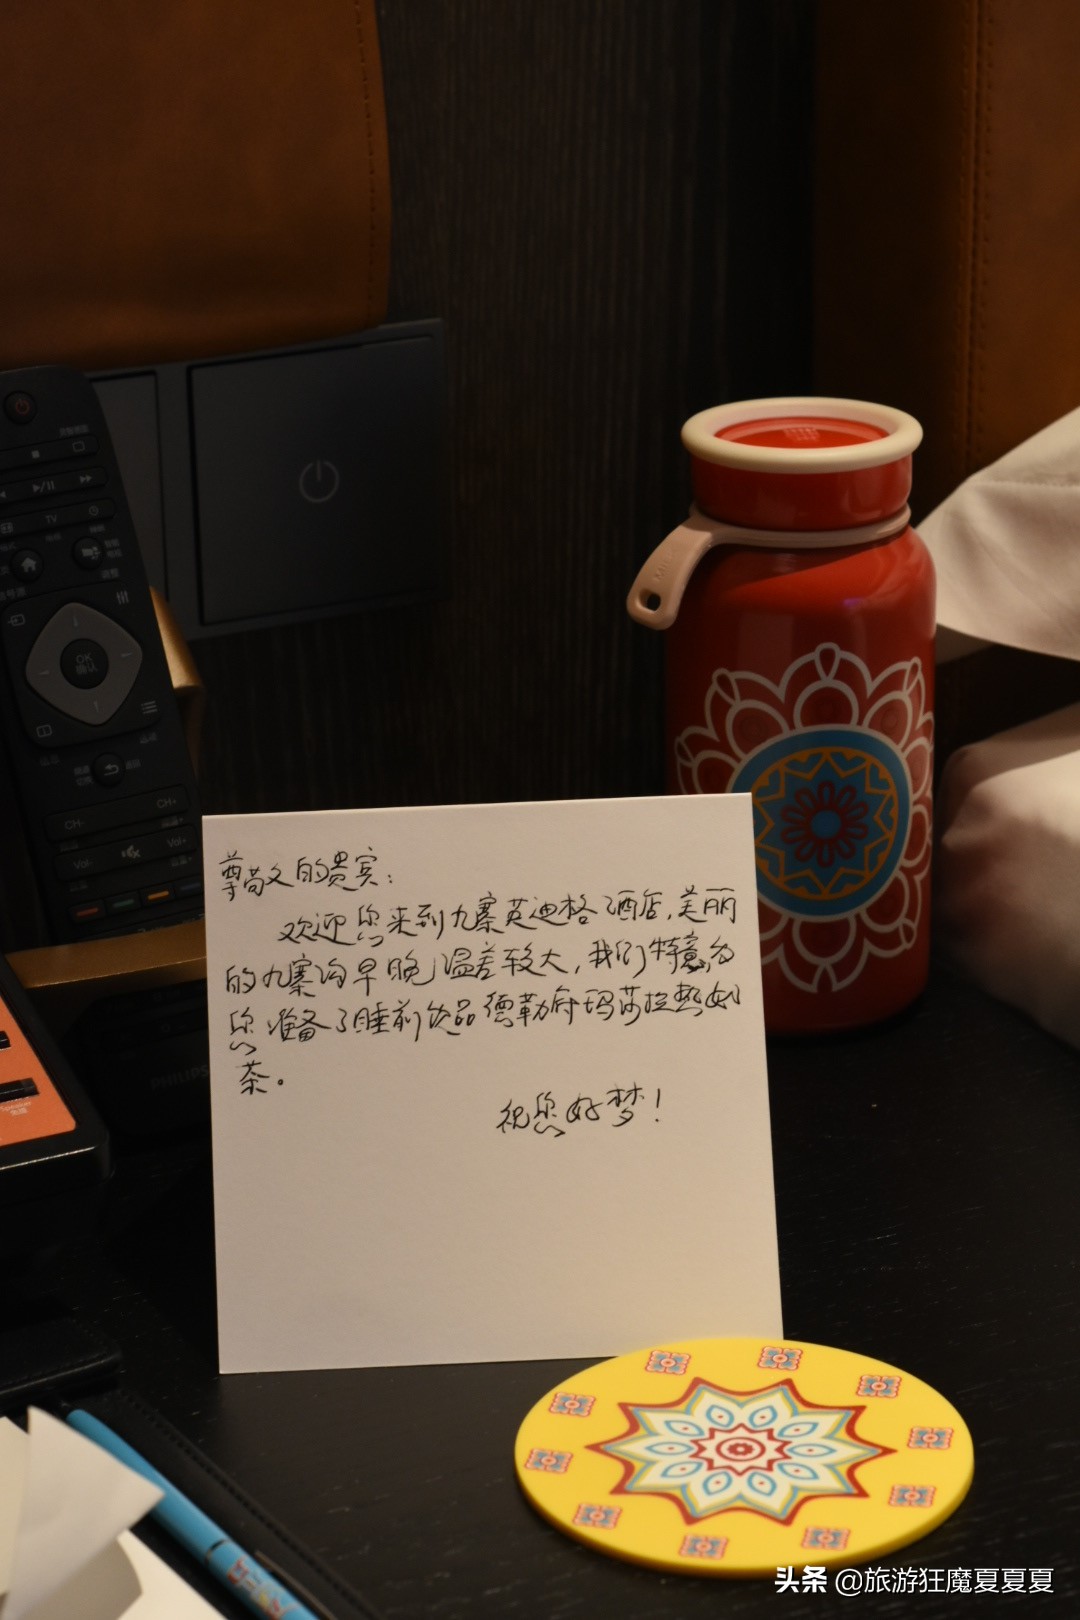 尊敬的贵宾：
欢迎您来到九寨英迪格酒店，美丽
的九寨沟早晚温差较大，我们特意为
您准备了睡前饮品德勒府玛莎拉热奶
茶。
祝您好梦！
TV
OK
确认
CH-
CH+
Vol-
Vol+
PHILIPS
头条 @旅游狂魔夏夏夏